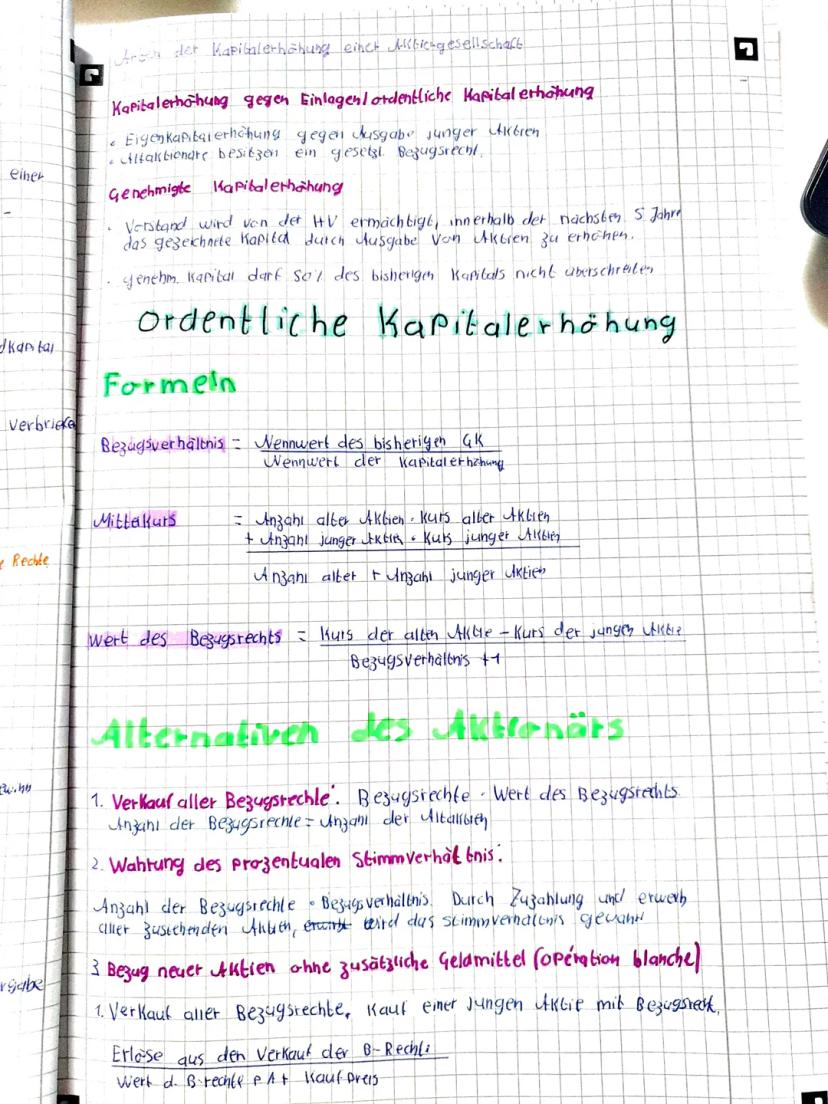 Arten der Kapitalerhöhung einer Aktiengesellschaft
Kapitalerhöhung gegen Einlagen/ordentliche Kapitalerhöhung
• Eigenkapitalerhöhung gegen Ausgabe junger Aktien
• Altaktionäre besitzen ein gesetzl. Bezugsrecht.
einer
Genehmigte Kapitalerhöhung
• Vorstand wird von der HV ermächtigt, innerhalb der nächsten 5 Jahre
das gezeichnete Kapital durch Ausgabe von Aktien zu erhöhen.
• genehm. Kapital darf 50% des bisherigen Kapitals nicht überschreiten
Ordentliche Kapitalerhöhung
dkapital
Formeln
verbriefe
Bezugsverhältnis = Nennwert des bisherigen GK
Nennwert der Kapitalerhöhung
Mittelkurs = Anzahl alter Aktien • Kurs alter Aktien
+ Anzahl junger Aktien • Kurs junger Aktien
Rechte
Anzahl alter + Anzahl junger Aktien
Wert des Bezugsrechts = Kurs der alten Aktie - Kurs der jungen Aktie
Bezugsverhältnis +1
Alternativen des Aktionärs
1. Verkauf aller Bezugsrechte: Bezugsrechte • Wert des Bezugsrechts
Anzahl der Bezugsrechte = Anzahl der Altaktien
2. Wahrung des prozentualen Stimmverhältnis:
Anzahl der Bezugsrechte • Bezugsverhältnis. Durch Zuzahlung und erwerb
aller zustehenden Aktien, wird das stimmverhältnis gewahrt
3 Bezug neuer Aktien ohne zusätzliche Geldmittel (opération blanche)
rgabe
1. Verkauf aller Bezugsrechte, Kauf einer jungen Aktie mit Bezugsrecht.
Erlöse aus den Verkauf der B-Rechte
Wert d. B-rechte p A + Kaufpreis